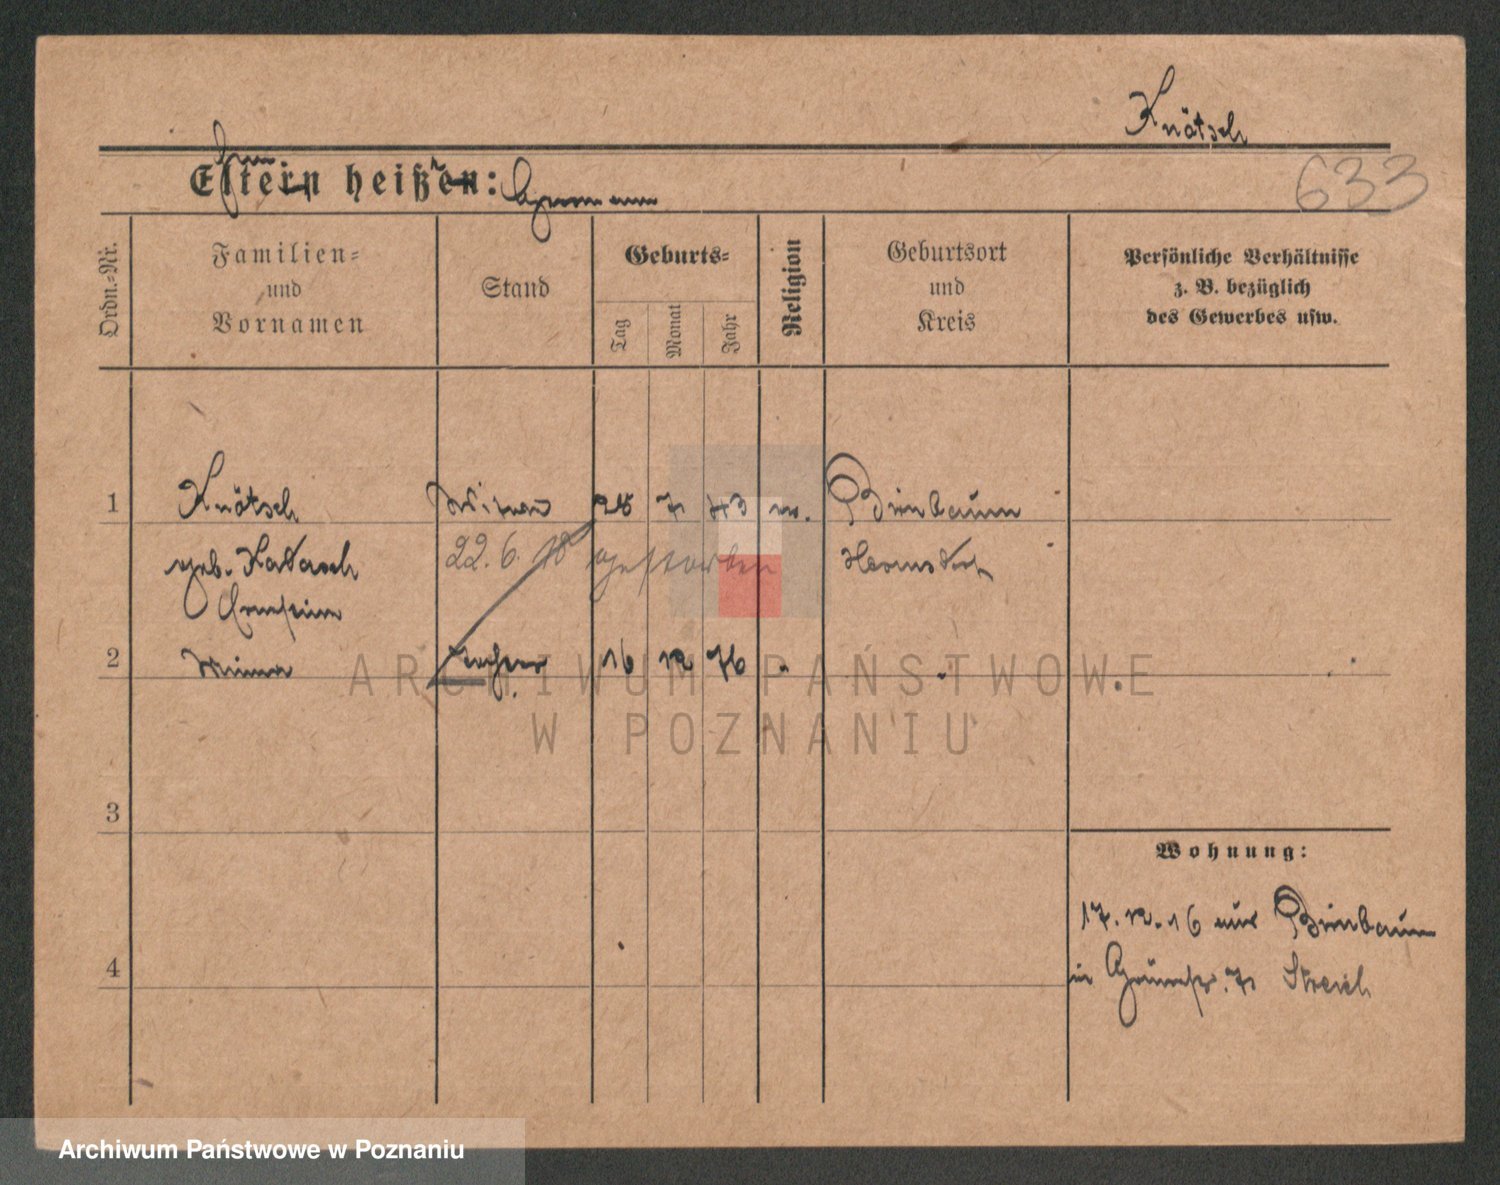 Knötsch
633
Eltern heißen: Hermann
Ordn.-Nr.
Familien-
und
Vornamen
Stand
Geburts-
Tag
Monat
Jahr
Religion
Geburtsort
und
Kreis
Persönliche Verhältnisse
z. B. bezüglich
des Gewerbes usw.
1 Knötsch Witwe 28 7 43 Birnbaum
geb. 22. 6. 18 gestorben
Ernstine
2 Minna Tochter 16 12 76
ARCHIWUM PAŃSTWOWE
W POZNANIU
3
Wohnung:
17.12.16 aus Birnbaum
4
in 7 Streich
Archiwum Państwowe w Poznaniu